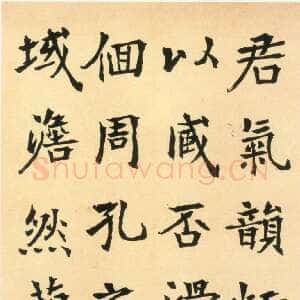 君氣韻
以臧否滑
佪周孔之
域澹然
Shufawang.CN